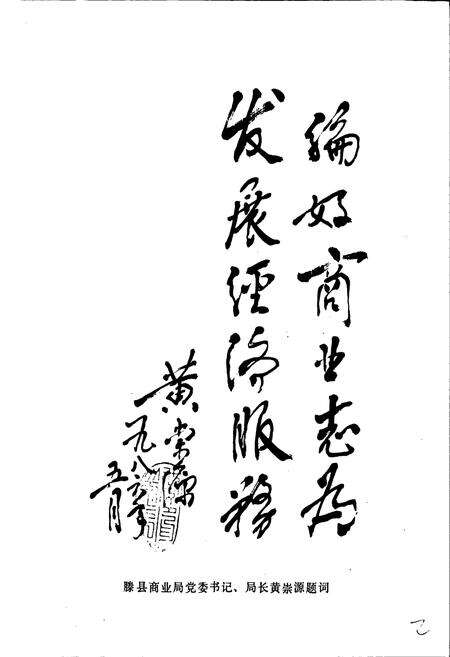 编好商业志为
发展经济服务
黄崇源
一九八六年
五月
滕县商业局党委书记、局长黄崇源题词